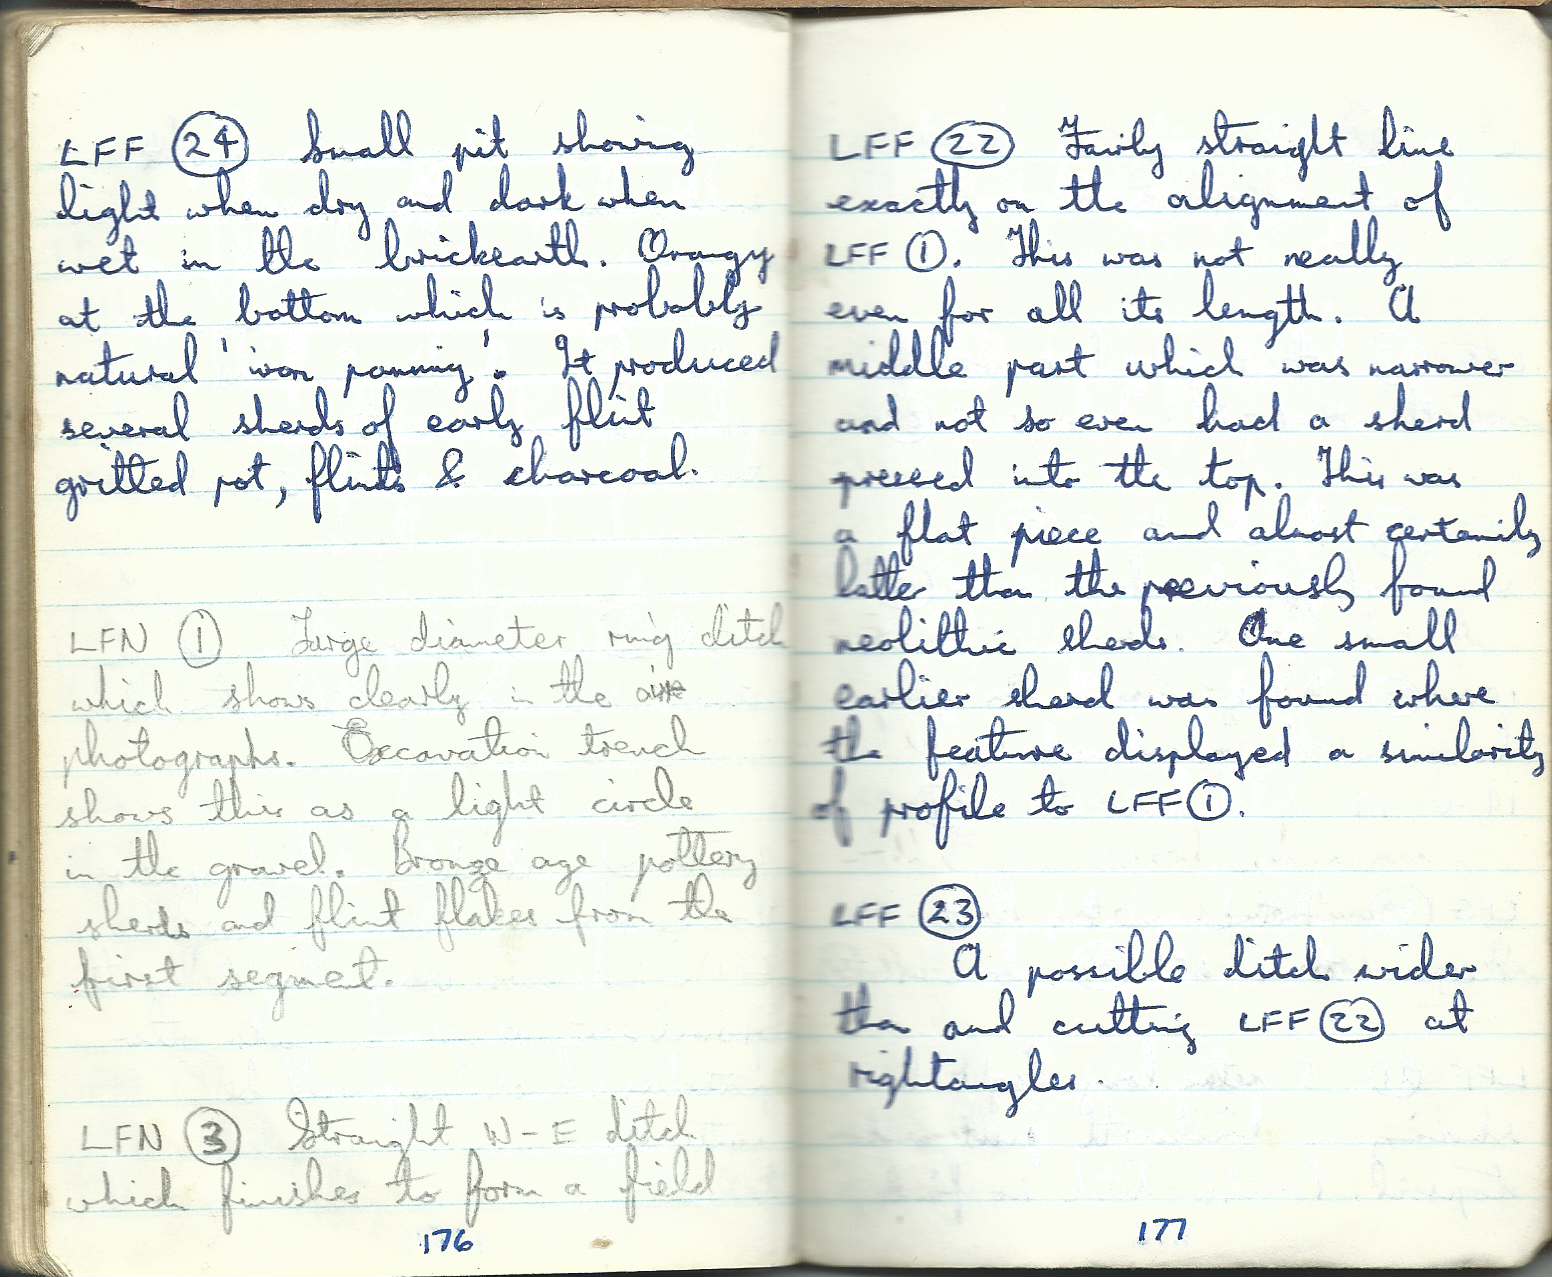 LFF 24 Small pit showing
light when dry and dark when
wet in the brickearth. Orangy
at the bottom which is probably
natural 'iron panning'. It produced
several sherds of early flint
gritted pot, flints & charcoal.
LFN 1 Large diameter ring ditch
which shows clearly in the
photographs. Excavation trench
shows this as a light circle
in the gravel. Bronze age pottery
sherds and flint flakes from the
first segment.
LFN 3 Straight W-E ditch
which finishes to form a field
176
LFF 22 Fairly straight line
exactly on the alignment of
LFF 1. This was not really
even for all its length. A
middle part which was narrower
and not so even had a sherd
pressed into the top. This was
a flat piece and almost certainly
latter than the previously found
neolithic sherds. One small
earlier sherd was found where
the feature displayed a similarity
of profile to LFF 1.
LFF 23
A possible ditch wider
than and cutting LFF 22 at
rightangles.
177